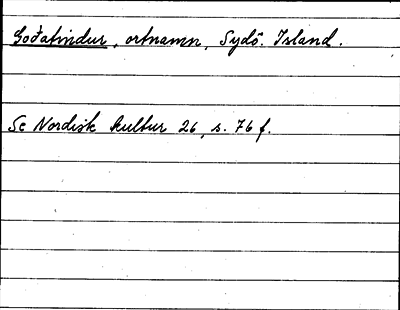 Goðatindur, ortnamn, Sydö. Island.
Se Nordisk kultur 26, s. 76 f.